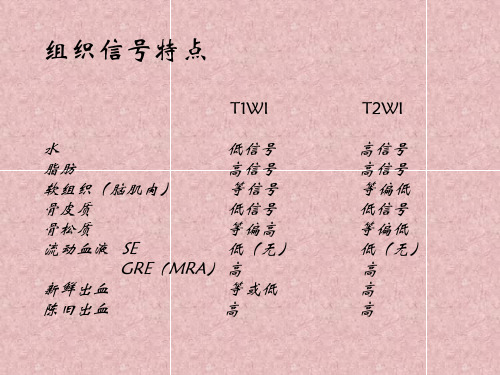 组织信号特点
T1WI T2WI
水 低信号 高信号
脂肪 高信号 高信号
软组织（脑肌肉） 等信号 等偏低
骨皮质 低信号 低信号
骨松质 等偏高 等偏低
流动血液 SE 低（无） 低（无）
GRE（MRA） 高 高
新鲜出血 等或低 高
陈旧出血 高 高